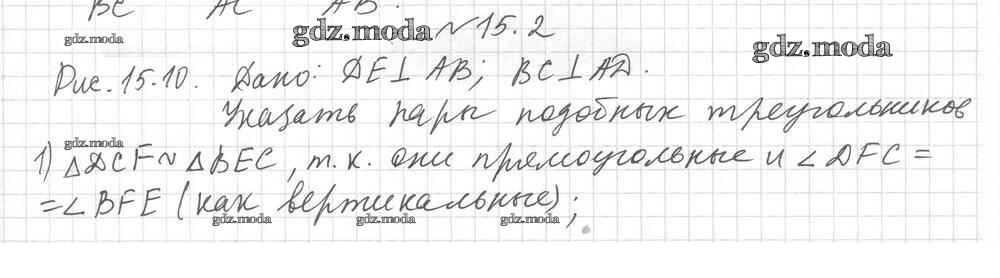 BC AC AB.
gdz.moda gdz.moda №15.2 gdz.moda
Рис. 15.10. Дано: DE⊥AB; BC⊥AD.
Указать пары подобных треугольников
gdz.moda
1) △DCF ~ △BEC, т.к. они прямоугольные и ∠DFC =
= ∠BFE (как вертикальные);
gdz.moda gdz.moda gdz.moda